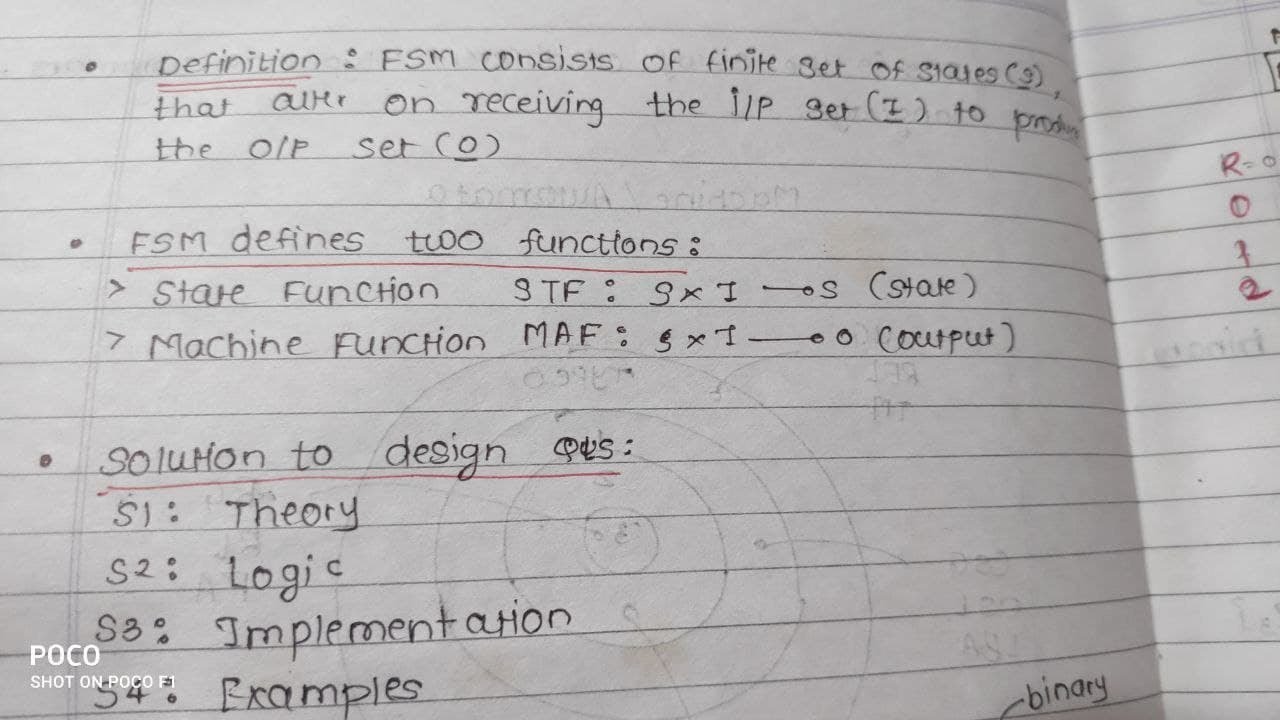 • Definition : FSM consists of finite set of states (S),
that alter on receiving the i/p set (I) to produce
the O/P set (O)
• FSM defines two functions :
> State Function STF : S x I → S (State)
> Machine Function MAF : S x I → O (output)
• Solution to design ques :
S1 : Theory
S2 : Logic
S3 : Implementation
S4 : Examples
binary
R = 0
0
1
2
POCO
SHOT ON POCO F1